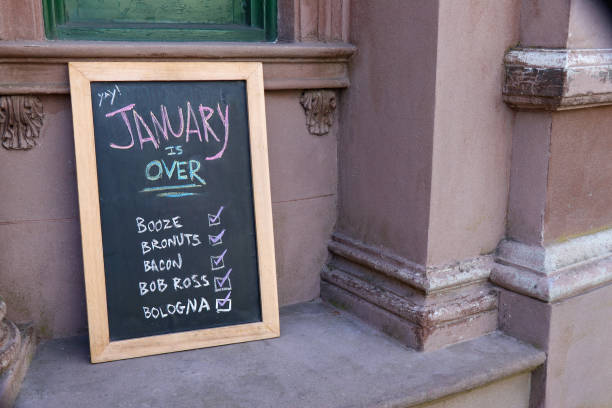 yay!
JANUARY
IS
OVER
BOOZE
BRONUTS
BACON
BOB ROSS
BOLOGNA